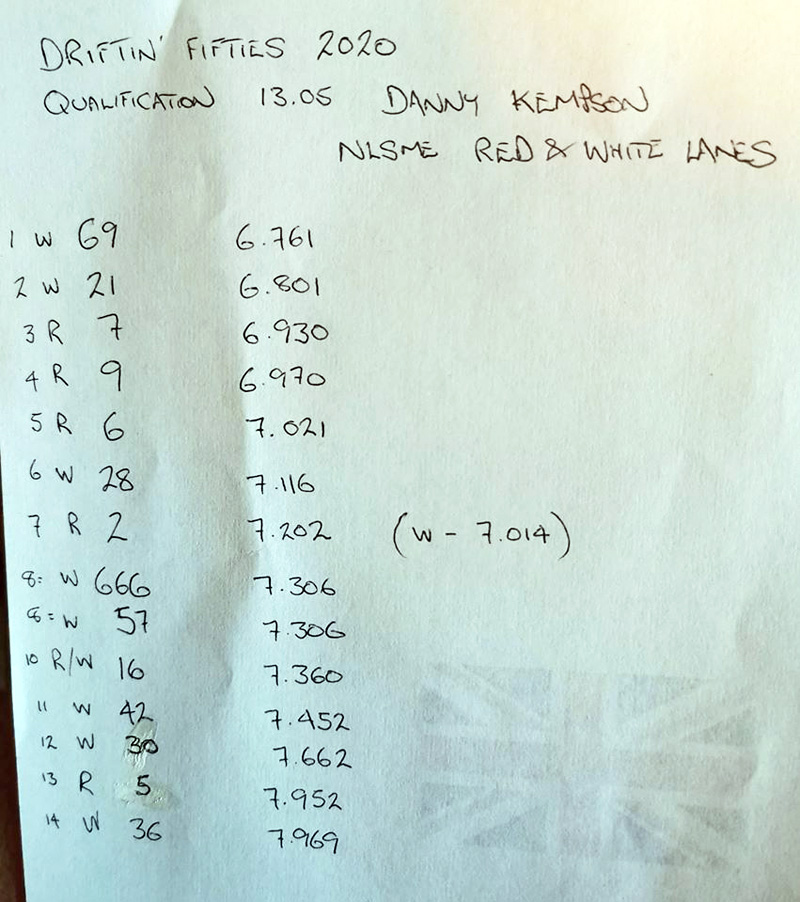 DRIFTIN' FIFTIES 2020
QUALIFICATION 13.05 DANNY KEMPSON
NLSME RED & WHITE LANES
1 W 69 6.761
2 W 21 6.801
3 R 7 6.930
4 R 9 6.970
5 R 6 7.021
6 W 28 7.116
7 R 2 7.202 (W - 7.014)
8= W 666 7.306
8= W 57 7.306
10 R/W 16 7.360
11 W 42 7.452
12 W 30 7.662
13 R 5 7.952
14 W 36 7.969